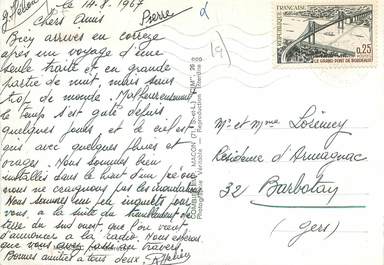 le 14-8-1967
Chers Amis
Bien arrivés en correze
après un voyage d'une
seule traite et en grande
partie de nuit, mais sans
trop de monde. Malheureusement
le temps s'est gâté depuis
quelques jours, et le ciel est
gris avec quelques pluies et
orages. Nous sommes bien
installés dans le haut d'un
nous ne craignons pas les inondations
Nous sommes un peu inquiets pour
vous, à la suite du tremblement de
terre du sud ouest que l'on vient
d'annoncer à la radio. Nous espérons
que vous avez passé au travers.
Bonnes amitiés à tous deux.
COMBIER IMP. MACON (S.-et-L.) "CIM"
Photographie Véritable — Reproduction Interdite
RÉPUBLIQUE FRANÇAISE
0,25
LE GRAND PONT DE BORDEAUX
Mr et Mme Lorémey
Résidence d'Armagnac
32 Barbotan
(Gers)